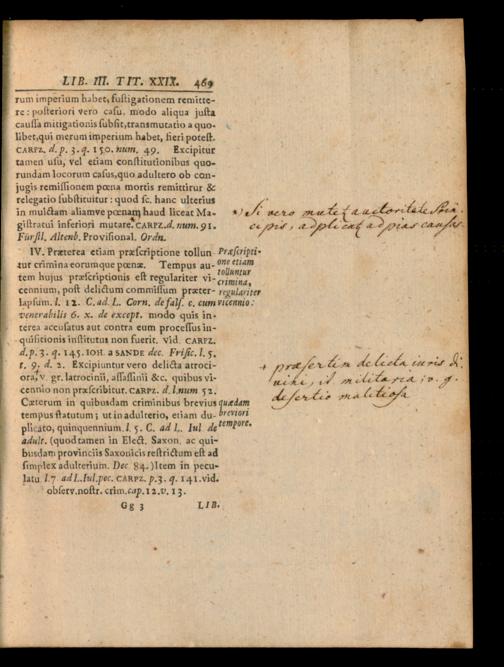 LIB. III. TIT. XXIX. 469
rum imperium habet, fustigationem remitte-
re: posteriori vero casu, modo aliqua justa
caussa mitigationis subsit, transmutatio a quo-
libet, qui merum imperium habet, fieri potest.
CARPZ. d. p. 3. q. 150. num. 49. Excipitur
tamen usu, vel etiam constitutionibus quo-
rundam locorum casus, quo adultero ob con-
jugis remissionem pœna mortis remittitur &
relegatio substituitur: quod sc. hanc ulterius
in mulctam aliamve pœnam haud liceat Ma-
gistratui inferiori mutare. CARPZ. d. num. 91.
Fürstl. Altenb. Provisional. Ordn.
*) Si vero mutet auctoritate Prin-
cipis, applicat ad pias causas.
IV. Præterea etiam præscriptione tollun-
tur crimina eorumque pœnæ. Tempus au-
tem hujus præscriptionis est regulariter vi-
cennium, post delictum commissum præter-
lapsum. l. 12. C. ad L. Corn. de fals. c. cum
venerabilis 6. x. de except. modo quis in-
terea accusatus aut contra eum processus in-
quisitionis institutus non fuerit. vid. CARPZ.
d. p. 3. q. 145. IOH. a SANDE dec. Frisic. l. 5.
t. 9. d. 2. Excipiuntur vero delicta atroci-
ora, v. gr. latrocinii, assassinii &c. quibus vi-
cennio non præscribitur. CARPZ. d. l. num 52.
Cæterum in quibusdam criminibus brevius
tempus statutum; ut in adulterio, etiam du-
plicato, quinquennium. l. 5. C. ad L. Iul de
adult. (quod tamen in Elect. Saxon. ac qui-
busdam provinciis Saxonicis restrictum est ad
simplex adulterium. Dec. 84.) Item in pecu-
latu l. 7. ad L. Iul. pec. CARPZ. p. 3. q. 141. vid.
observ. nostr. crim. cap. 12. v. 13.
Præscripti-
one etiam
tolluntur
crimina,
regulariter
vicennio:
+ præsertim delicta iuris di-
vini, it. militaria, v. g.
desertio malitiosa
quædam
breviori
tempore.
Gg 3 LIB.